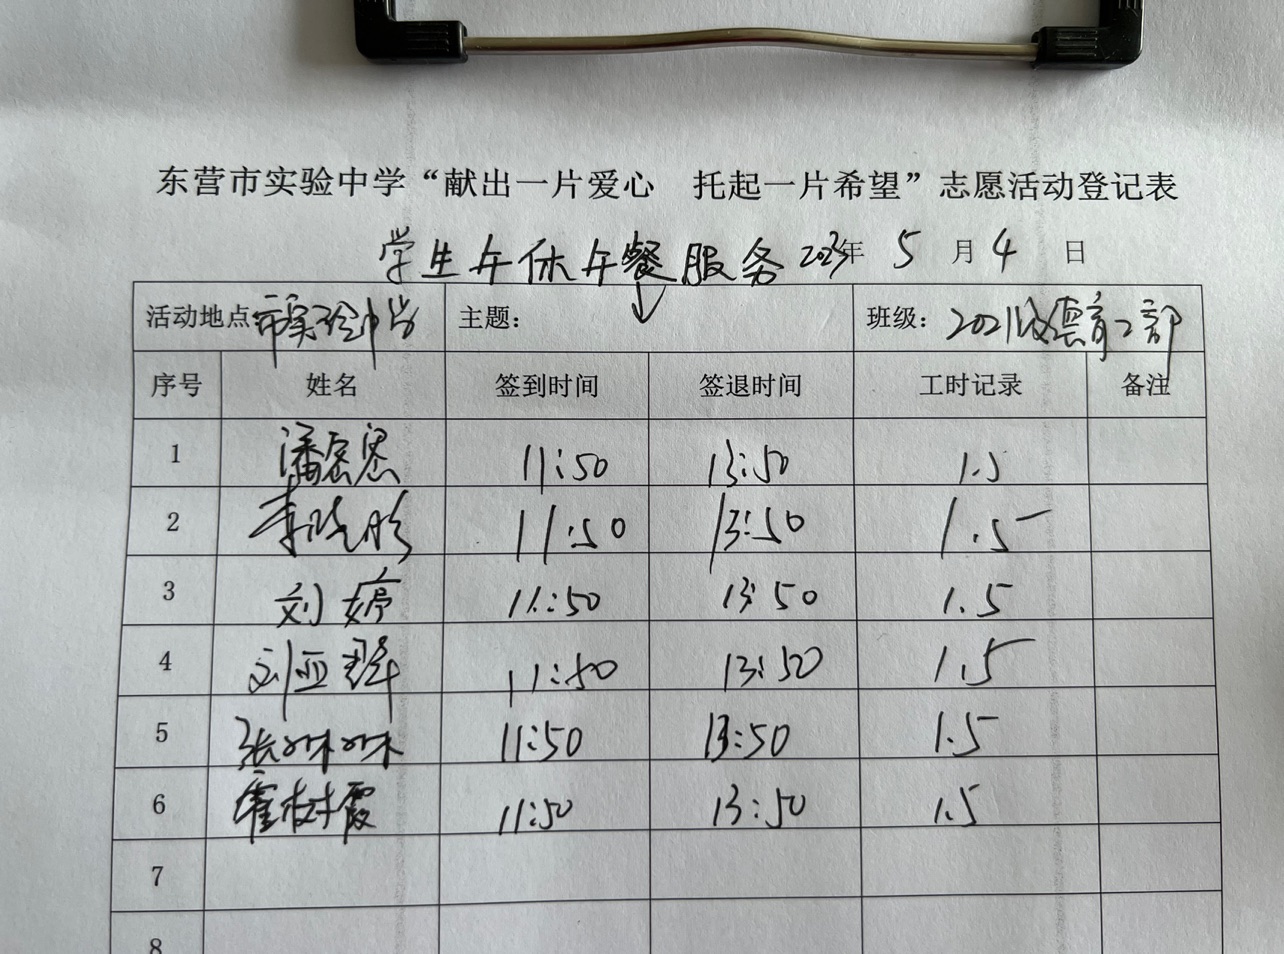 东营市实验中学“献出一片爱心 托起一片希望”志愿活动登记表
学生午休午餐服务 2023年 5 月 4 日
活动地点 市实验中学 主题： 班级： 2021级德育二部
序号 姓名 签到时间 签退时间 工时记录 备注
1 潘 11:50 13:50 1.5
2 李晓彤 11:50 13:50 1.5
3 刘婷 11:50 13:50 1.5
4 刘亚 11:50 13:50 1.5
5 张咪咪 11:50 13:50 1.5
6 霍树霞 11:50 13:50 1.5
7
8